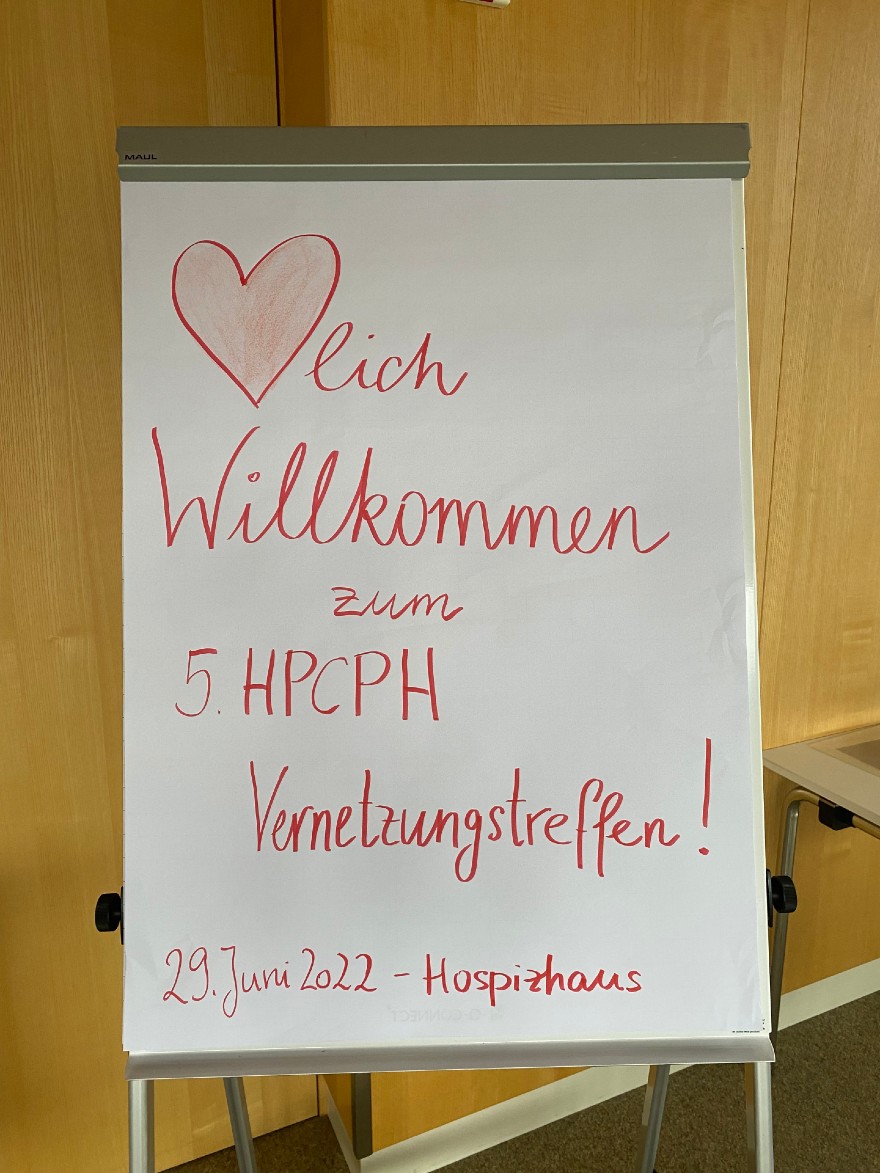 MAUL
♥lich
Willkommen
zum
5. HPCPH
Vernetzungstreffen!
29. Juni 2022 - Hospizhaus